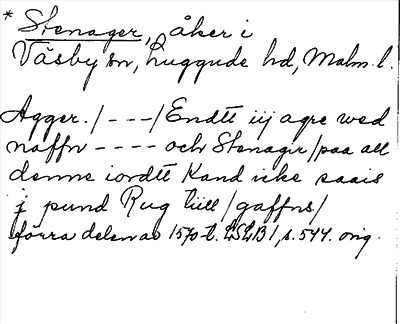 * Stenager, åker i
Väsby sn, Luggude hd, Malm. l.
Agger. / - - - / Endtt iij agre wed
naffn - - - - och Stenagir / paa all
denne iordtt Kand icke saais
j pund Rug till / gaffns /
förra delen av 1570-t. LSLB 1, s. 544. orig.